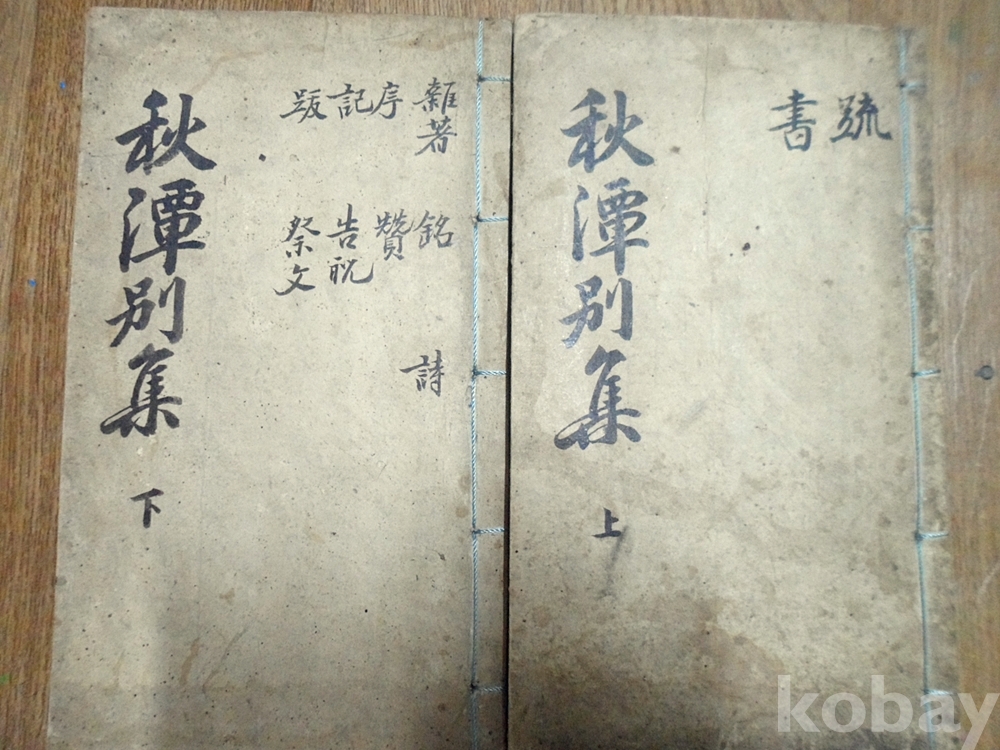 疏
書
秋潭別集
上
雜著 銘 詩
序 贊
記 告祝
跋 祭文
秋潭別集
下
kobay